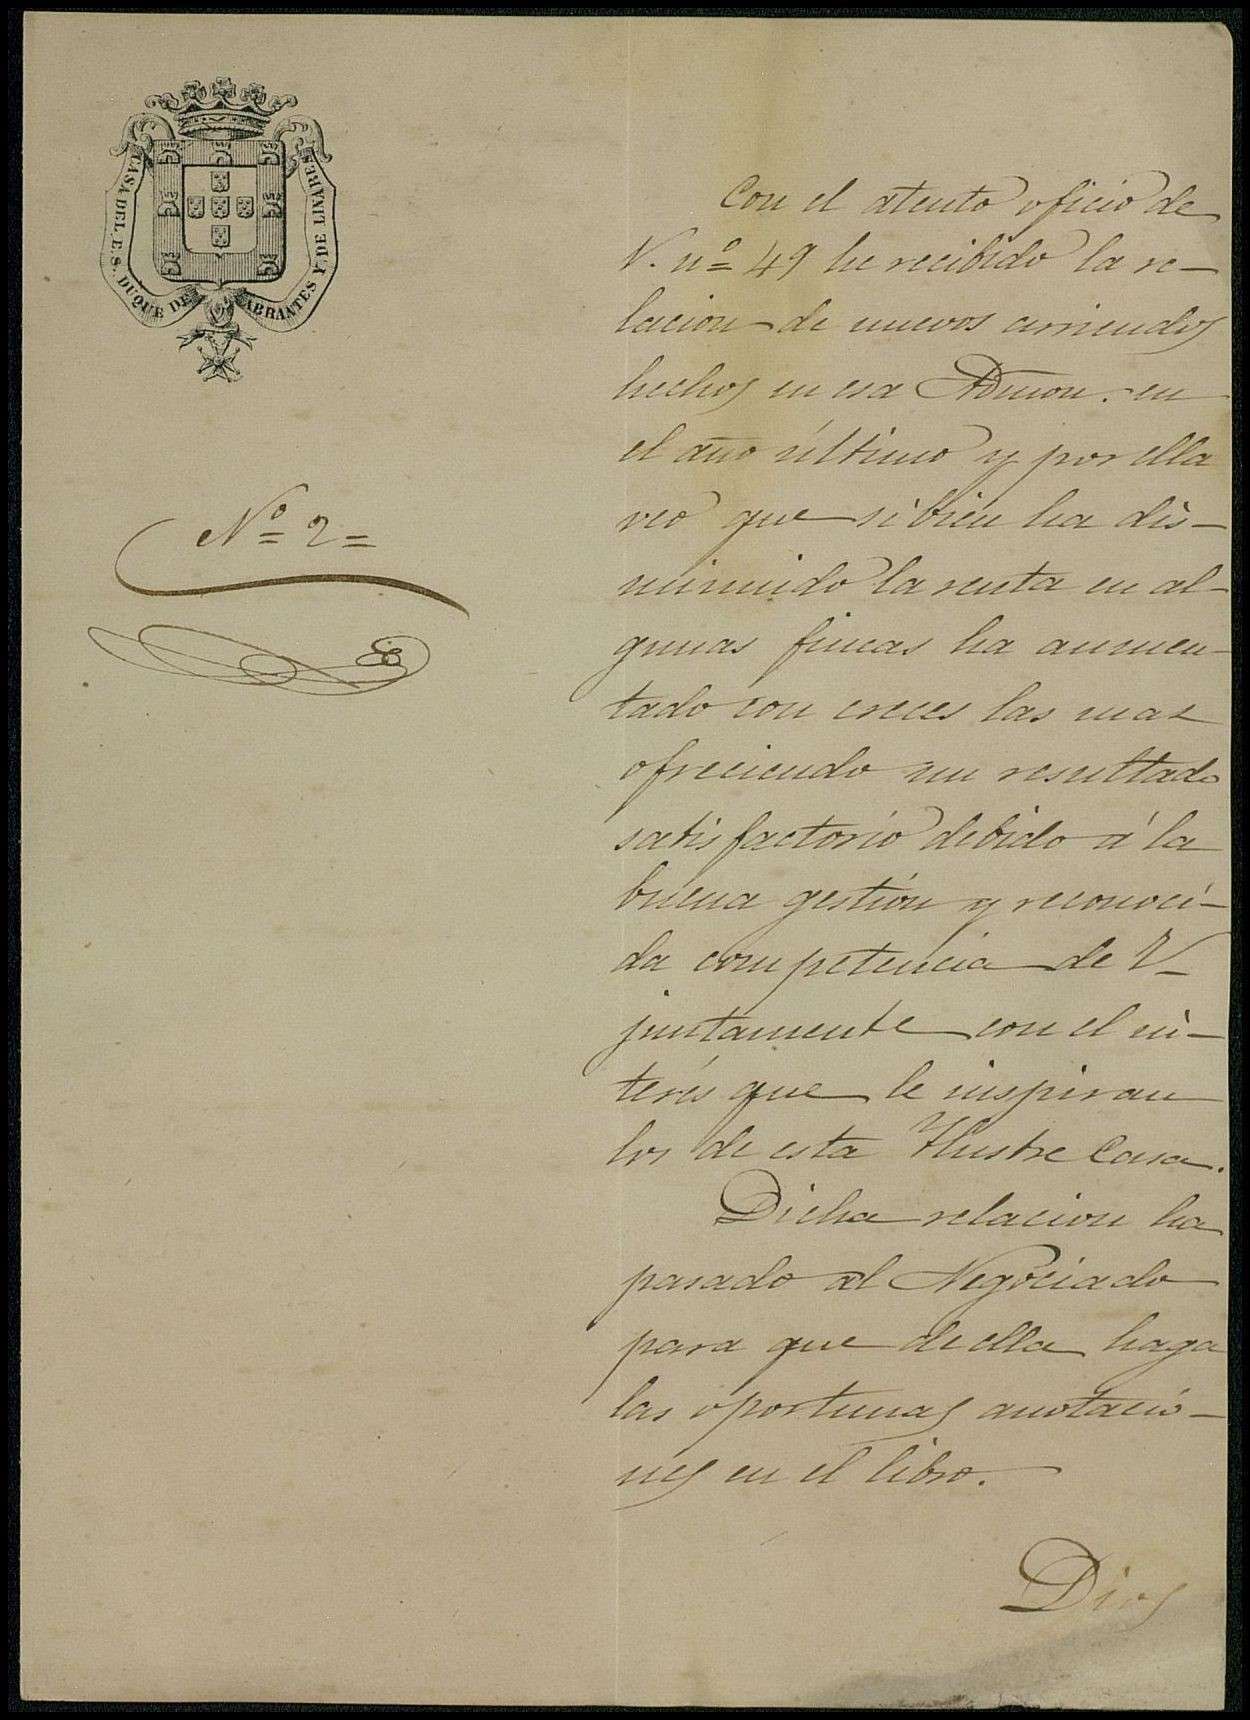 CASA DEL E.S. DUQUE DE ABRANTES Y DE LINARES
Nº 2
Con el atento oficio de
V. nº 49 he recibido la re-
lacion de nuevos arriendos
hechos en esa Admon. en
el año último y por ella
veo que si bien ha dis-
minuido la renta en al-
gunas fincas ha aumen-
tado con creces las mas
ofreciendo un resultado
satisfactorio debido á la
buena gestión y reconoci-
da competencia de V.
juntamente con el in-
terés que le inspiran
los de esta Ilustre Casa.
Dicha relacion ha
pasado al Negociado
para que de ella haga
las oportunas anotacio-
nes en el libro.
Dios